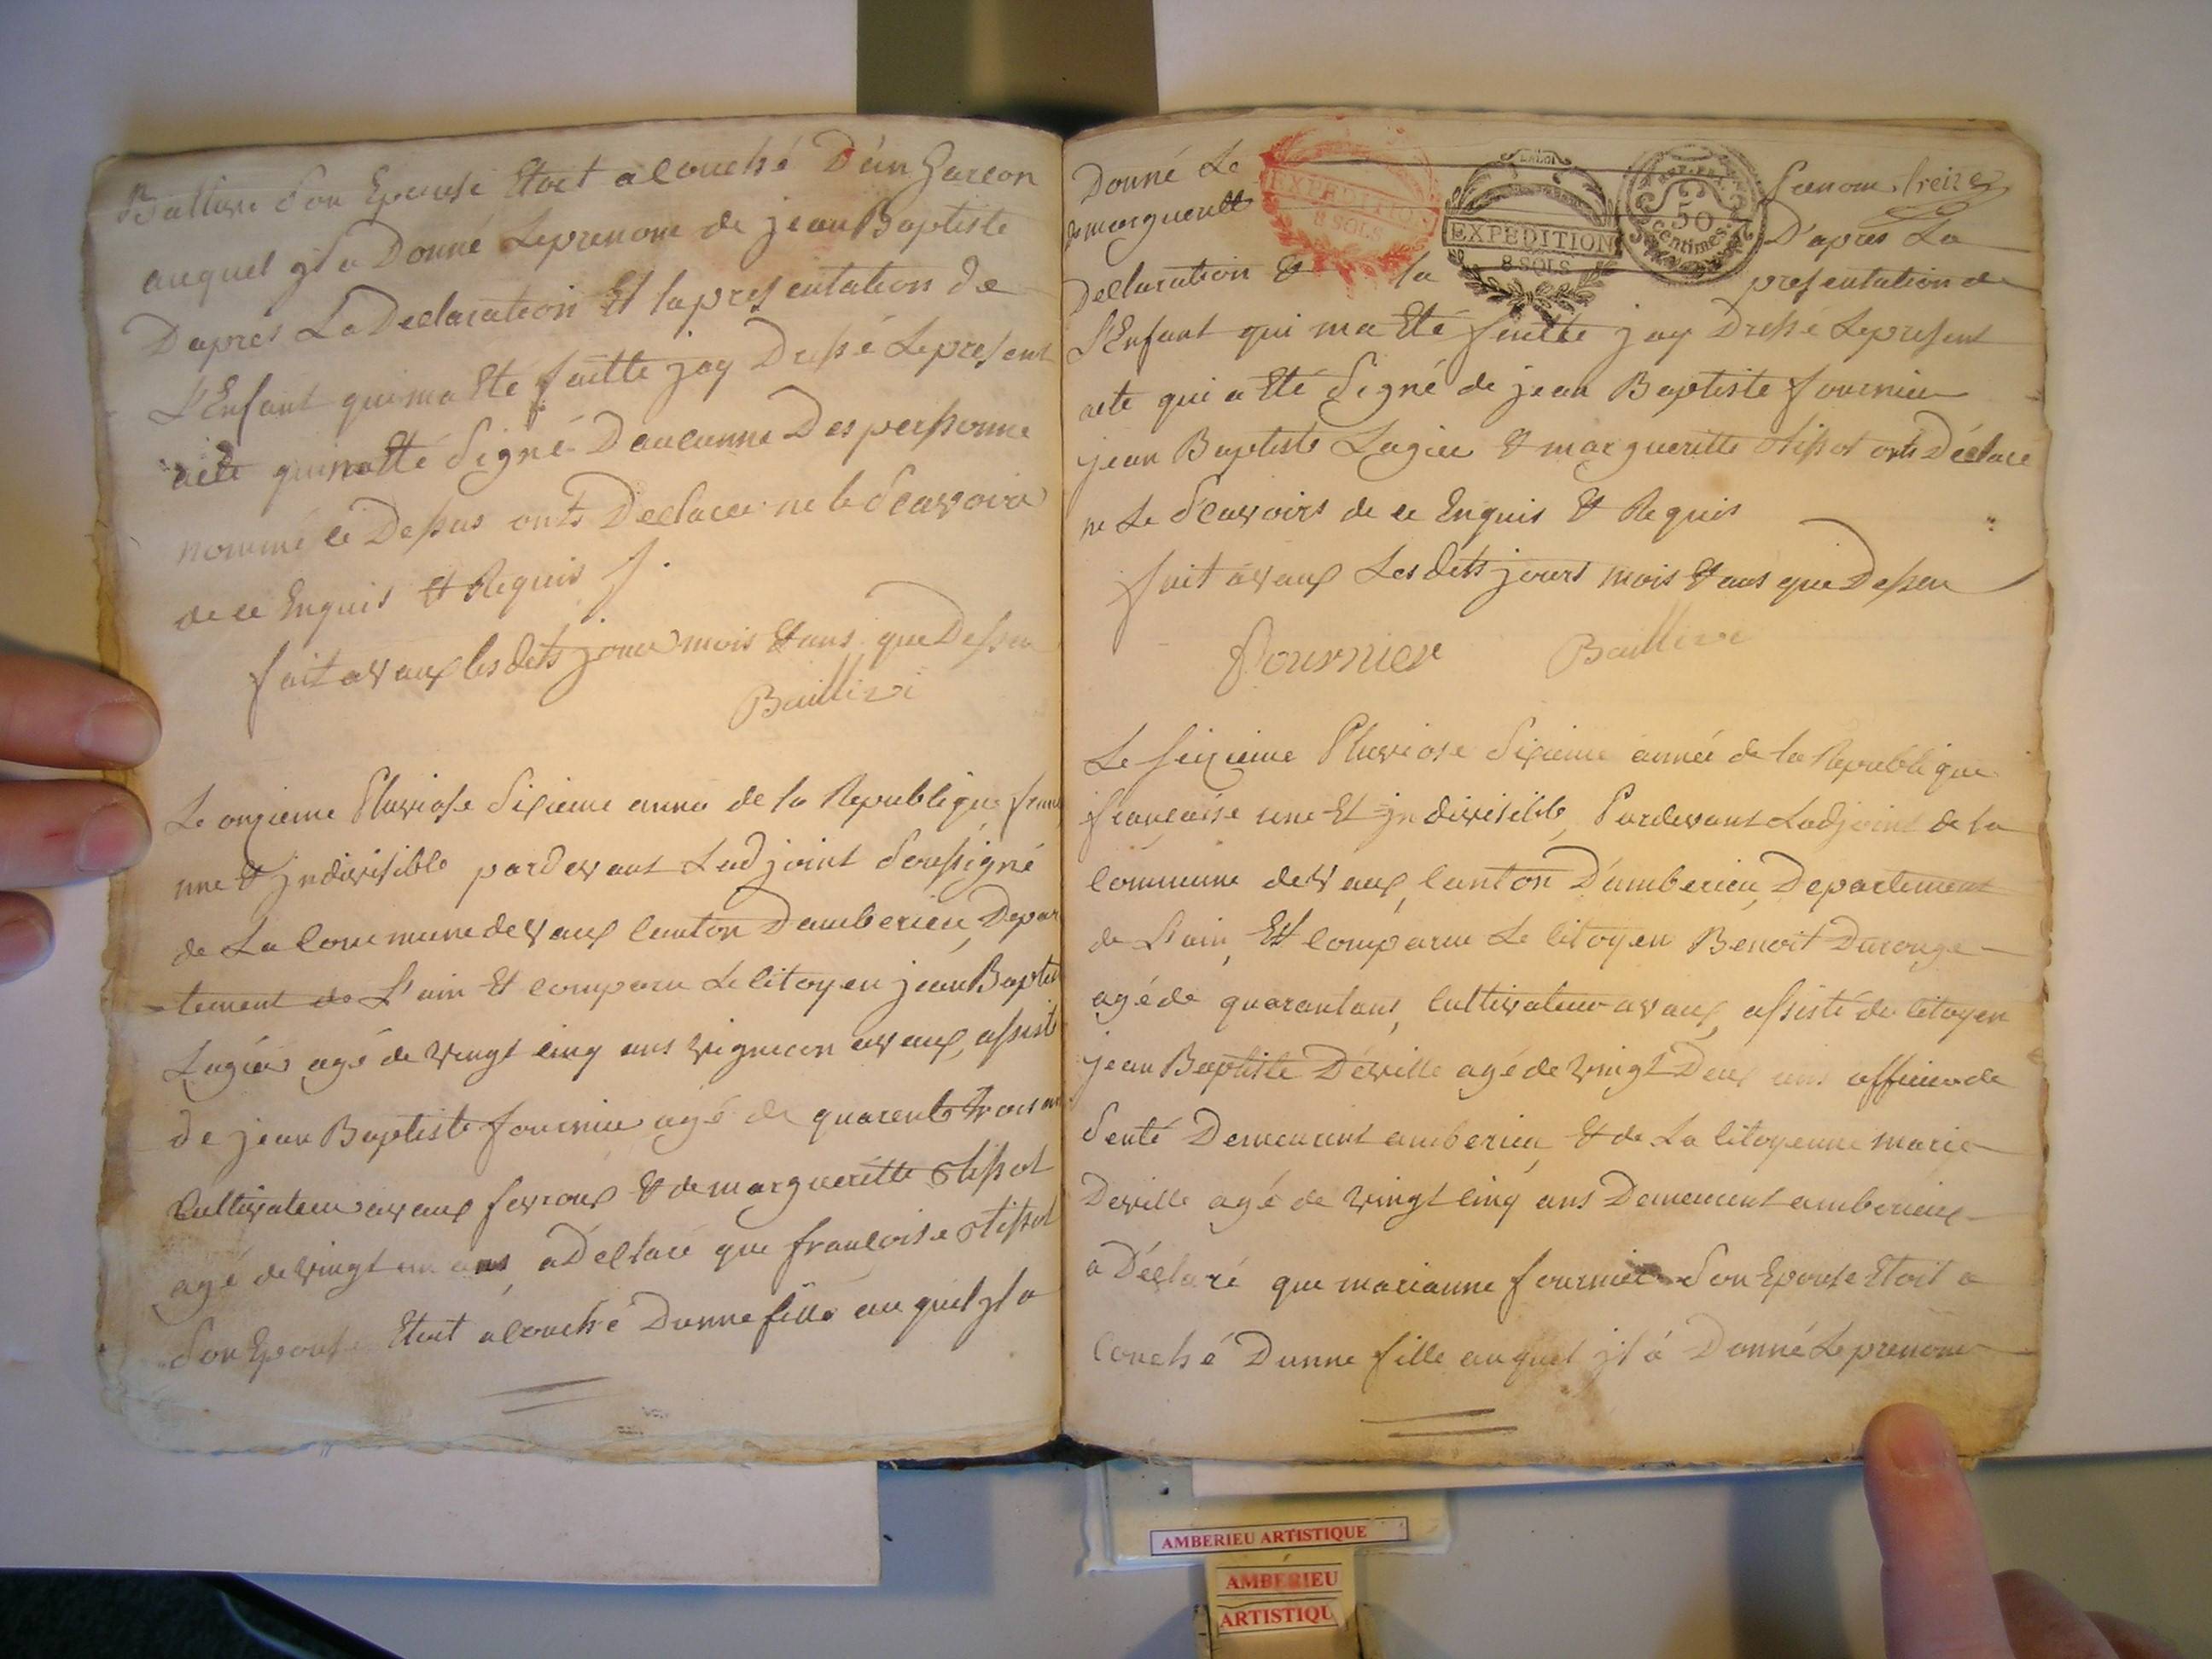 Ballive son Epouse Etoit acouché D'un Garcon
auquel jl a Donné Leprenom de jean Baptiste
D'aprés La Declaration Et lapresentation De
L'Enfant quimaEté faitte jay Dressé Lepresent
acte quinatté Signé Daucunne Des personne
nommé ci Dessus onts Declarer ne le Scavoire
de ce Enquis & Requis
fait avaux les dets jour mois & ans que Dessu
Baillivi
Le onzieme Pluviose Sixieme anné de la Republique franc
une & jndivisible pardevant Ladjoint Soussigné
de La Commune devaux Canton Damberieu, Depar
-tement de L'ain Et comparu Le Citoyen jean Baptis
Lagier agé de vingt cinq ans vigneron avaux, assisté
de jean Baptiste fournier agé de quarente trois an
Cultivateur avaux fevroux & de margueritte Tissot
agé devingt un ans, a Déclaré que francoise Tissot
Son Epouse Etoit acouché Dunne fille au quel jl a
Donné Le prenom treize
de margueritte D'apres La
Declaration & la presentation de
L'Enfant qui ma Eté faitte jay Dressé Lepresent
acte qui a Eté Signé de jean Baptiste fournier
jean Baptiste Lagier & margueritte Tissot onts Déclaré
ne Le Scavoirs de ce Enquis & Requis
fait avaux Les dets jours mois & ans que Dessu
fournier Baillive
EXPEDITION
8 SOLS
LA LOI
EXPEDITION
8 SOLS
50
centimes
Le seizieme Pluviose Sixieme année de la Republique
francaise une Et jndivisible, Pardevant Ladjoint de la
Commune devaux, Canton D'amberieu, Departement
de L'ain, Est comparu Le Citoyen Benoit Durouge
agé de quarantans, Cultivateur avaux, assisté du Citoyen
jean Baptiste Déville agé de vingt Deux ans officier de
Senté Demeurent amberieu & de La Citoyenne marie
Deville agé de vingt cinq ans Demeurent amberieux
a Déclaré que marianne fournier Son Epouse Etoit a
Couché Dunne fille auquel jl à Donné Leprenom
AMBERIEU ARTISTIQUE
AMBÉRIEU
ARTISTIQU